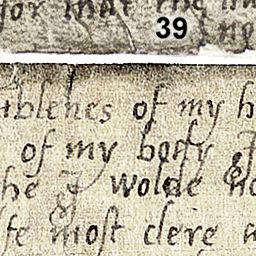 for that the
39
ne
ablenes of my h
of my body I
he I wolde no
fe most dere